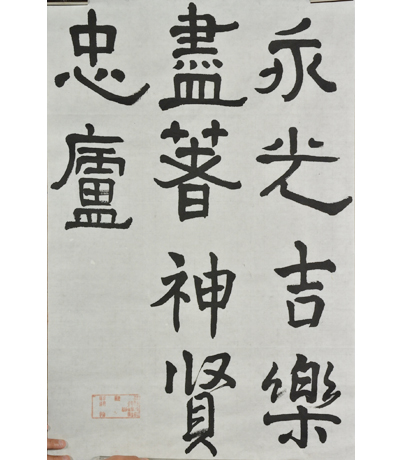 永光吉樂
盡著神賢
忠廬